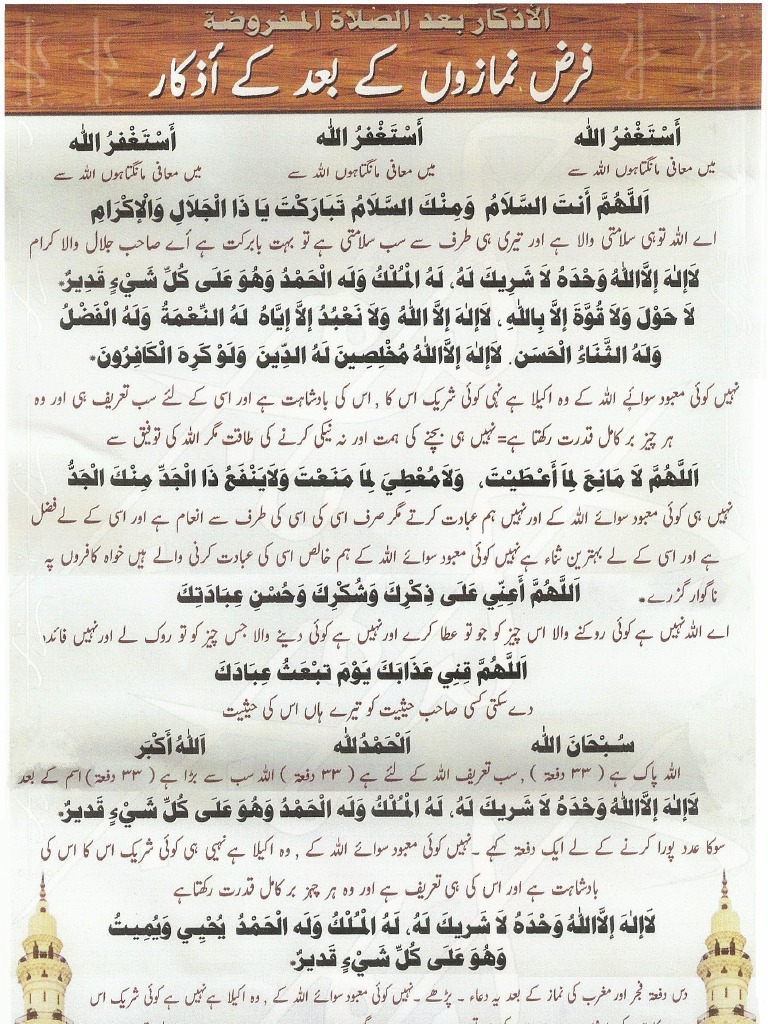 الأذكار بعد الصلاة المفروضة
فرض نمازوں کے بعد کے أذکار
أَسْتَغْفِرُ الله أَسْتَغْفِرُ الله أَسْتَغْفِرُ الله
میں معافی مانگتاہوں اللہ سے میں معافی مانگتاہوں اللہ سے میں معافی مانگتاہوں اللہ سے
اَللَّهُمَّ أَنتَ السَّلَامُ وَمِنْكَ السَّلَامُ تَبَارَكْتَ يَا ذَا الْجَلَالِ وَالْإِكْرَامِ
اے اللہ توہی سلامتی والا ہے اور تیری ہی طرف سے سب سلامتی ہے تو بہت بابرکت ہے أے صاحب جلال والا کرام
لَاإِلهَ إِلَّااللهُ وَحْدَهُ لَا شَرِيكَ لَهُ، لَهُ الْمُلْكُ وَلَه الْحَمْدُ وَهُوَ عَلَى كُلِّ شَيْءٍ قَدِيرٌ۔
لَا حَوْلَ وَلَا قُوَّةَ إِلَّا بِاللهِ، لَاإِلهَ إِلَّا اللهُ وَلَا نَعْبُدُ إِلَّا إِيَّاهُ لَهُ النِّعْمَةُ وَلَهُ الْفَضْلُ
وَلَهُ الثَّنَاءُ الْحَسَن. لَاإِلهَ إِلَّااللهُ مُخْلِصِينَ لَهُ الدِّينَ وَلَوْ كَرِهَ الْكَافِرُونَ۔
نہیں کوئی معبود سوائے اللہ کے وہ اکیلا ہے نہی کوئی شریک اس کا , اس کی بادشاہت ہے اور اسی کے لئے سب تعریف ہی اور وہ
ہر چیز بر کامل قدرت رکھتا ہے=نہیں ہی بچنے کی ہمت اور نہ نیکی کرنے کی طاقت مگر اللہ کی توفیق سے
اَللَّهُمَّ لَا مَانِعَ لِمَا أَعْطَيْتَ، وَلَامُعْطِيَ لِمَا مَنَعْتَ وَلَايَنْفَعُ ذَا الْجَدِّ مِنْكَ الْجَدُّ
نہیں ہی کوئی معبود سوائے اللہ کے اورنہیں ہم عبادت کرتے مگر صرف اسی کی اسی کی طرف سے انعام ہے اور اسی کے لے فضل
ہے اور اسی کے لے بہترین ثناء ہے نہیں کوئی معبود سوائے اللہ کے ہم خالص اسی کی عبادت کرنی والے ہیں خواہ کافروں پہ
ناگوار گزرے۔ اَللَّهُمَّ أَعِنِّي عَلَى ذِكْرِكَ وَشُكْرِكَ وَحُسْنِ عِبَادَتِكَ
اے اللہ نہیں ہے کوئی روکنے والا اس چیز کو جو تو عطا کرے اورنہیں ہے کوئی دینے والا جس چیز کو تو روک لے اورنہیں فائدہ
اَللَّهُمَّ قِنِي عَذَابَكَ يَوْمَ تَبْعَثُ عِبَادَكَ
دے سکتی کسی صاحب حیثیت کو تیرے ہاں اس کی حیثیت
سُبْحَانَ الله اَلْحَمْدُلله اَللهُ أَكْبَر
اللہ پاک ہے ( ۳۳ دفعۃ ) , سب تعریف اللہ کے لئے ہے ( ۳۳ دفعۃ ) اللہ سب سے بڑا ہے ( ۳۳ دفعۃ ) اسم کے بعد
لَاإِلهَ إِلَّااللهُ وَحْدَهُ لَا شَرِيكَ لَهُ، لَهُ الْمُلْكُ وَلَه الْحَمْدُ وَهُوَ عَلَى كُلِّ شَيْءٍ قَدِيرٌ۔
سوکا عدد پورا کرنے کے لے ایک دفعۃ کہے ۔ نہیں کوئی معبود سوائے اللہ کے , وہ اکیلا ہے نہیی ہی کوئی شریک اس کا اس کی
بادشاہت ہے اور اس کی ہی تعریف ہے اور وہ ہر چہز بر کامل قدرت رکھتاہے
لَاإِلهَ إِلَّااللهُ وَحْدَهُ لَا شَرِيكَ لَهُ، لَهُ الْمُلْكُ وَلَه الْحَمْدُ يُحْيِي وَيُمِيتُ
وَهُوَ عَلَى كُلِّ شَيْءٍ قَدِيرٌ۔
دس دفعۃ فجر اور مغرب کی نماز کے بعد یہ دعاء ۔ پڑھے ۔ نہیں کوئی معبود سوائے اللہ کے , وہ اکیلا ہے نہیں ہے کوئی شریک اس